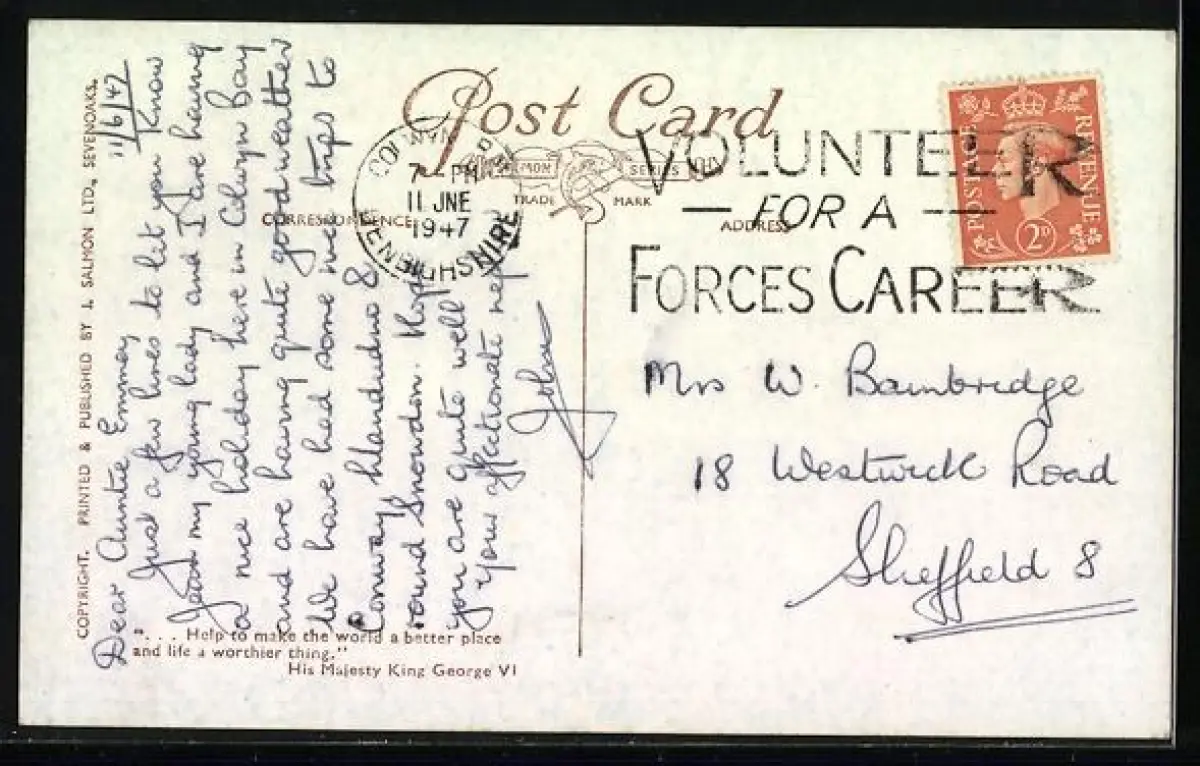 Post Card
SALMON SERIES
TRADE MARK
CORRESPONDENCE
ADDRESS
COPYRIGHT. PRINTED & PUBLISHED BY J. SALMON LTD., SEVENOAKS.
11/6/47
Dear Auntie Emmay
Just a few lines to let you know
Jean my young lady and I are having
a nice holiday here in Colwyn Bay
and are having quite good weather
We have had some nice trips to
Conway, Llandudno &
round Snowdon. Hope
you are quite well
your affectionate nephew
John
"... Help to make the world a better place
and life a worthier thing."
His Majesty King George VI
COLWYN BAY
7 - PM
11 JNE
1947
DENBIGHSHIRE
VOLUNTEER
— FOR A —
FORCES CAREER
POSTAGE REVENUE
2D
Mrs W. Bambridge
18 Westwick Road
Sheffield 8